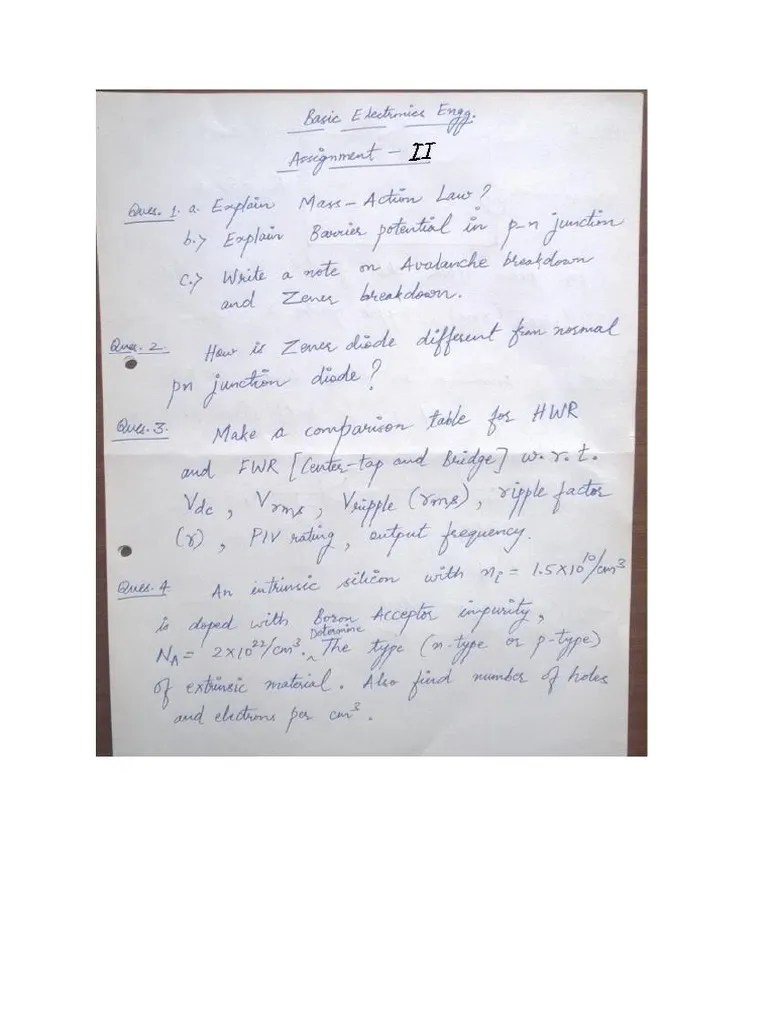 Basic Electronics Engg.
Assignment - II
Ques. 1. a. Explain Mass-Action Law?
b.> Explain Barrier potential in p-n junction
c.> Write a note on Avalanche breakdown
and Zener breakdown.
Ques. 2 How is Zener diode different from normal
pn junction diode?
Ques. 3. Make a comparison table for HWR
and FWR [Center-tap and Bridge] w.r.t.
Vdc, Vrms, Vripple (rms), ripple factor
(r), PIV rating, output frequency.
Ques. 4. An intrinsic silicon with ni = 1.5×10¹⁰/cm³
is doped with Boron Acceptor impurity,
NA = 2×10²²/cm³. Determine The type (n-type or p-type)
of extrinsic material. Also find number of holes
and electrons per cm³.